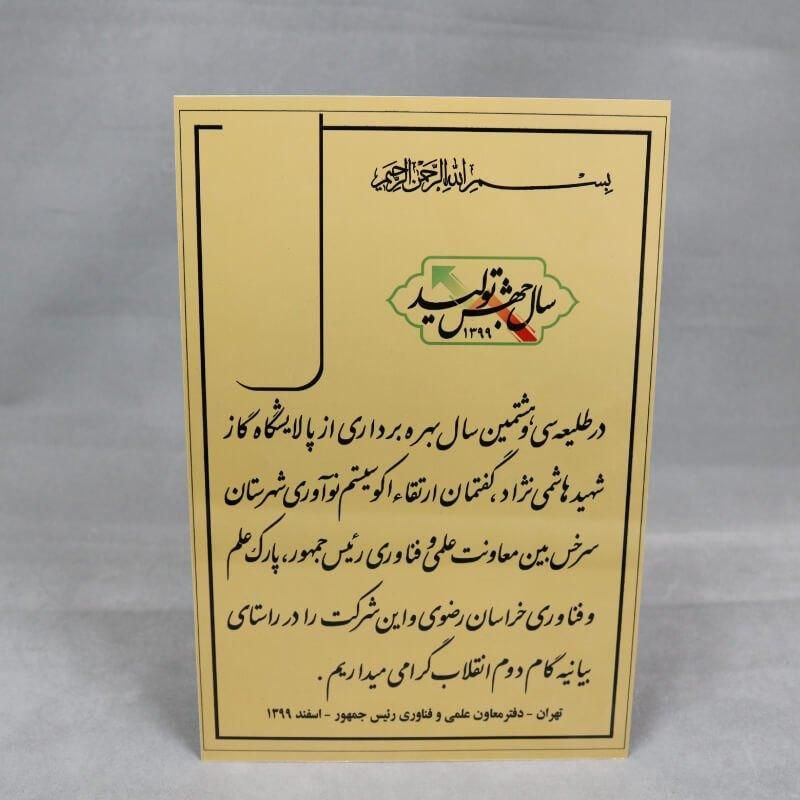 بسم الله الرحمن الرحیم
سال جهش تولید
۱۳۹۹
در طلیعه سی و هشتمین سال بهره برداری از پالایشگاه گاز
شهید هاشمی نژاد، گفتمان ارتقاء اکوسیستم نوآوری شهرستان
سرخس بین معاونت علمی و فناوری رئیس جمهور، پارک علم
و فناوری خراسان رضوی و این شرکت را در راستای
بیانیه گام دوم انقلاب گرامی میداریم .
تهران - دفتر معاون علمی و فناوری رئیس جمهور - اسفند ۱۳۹۹